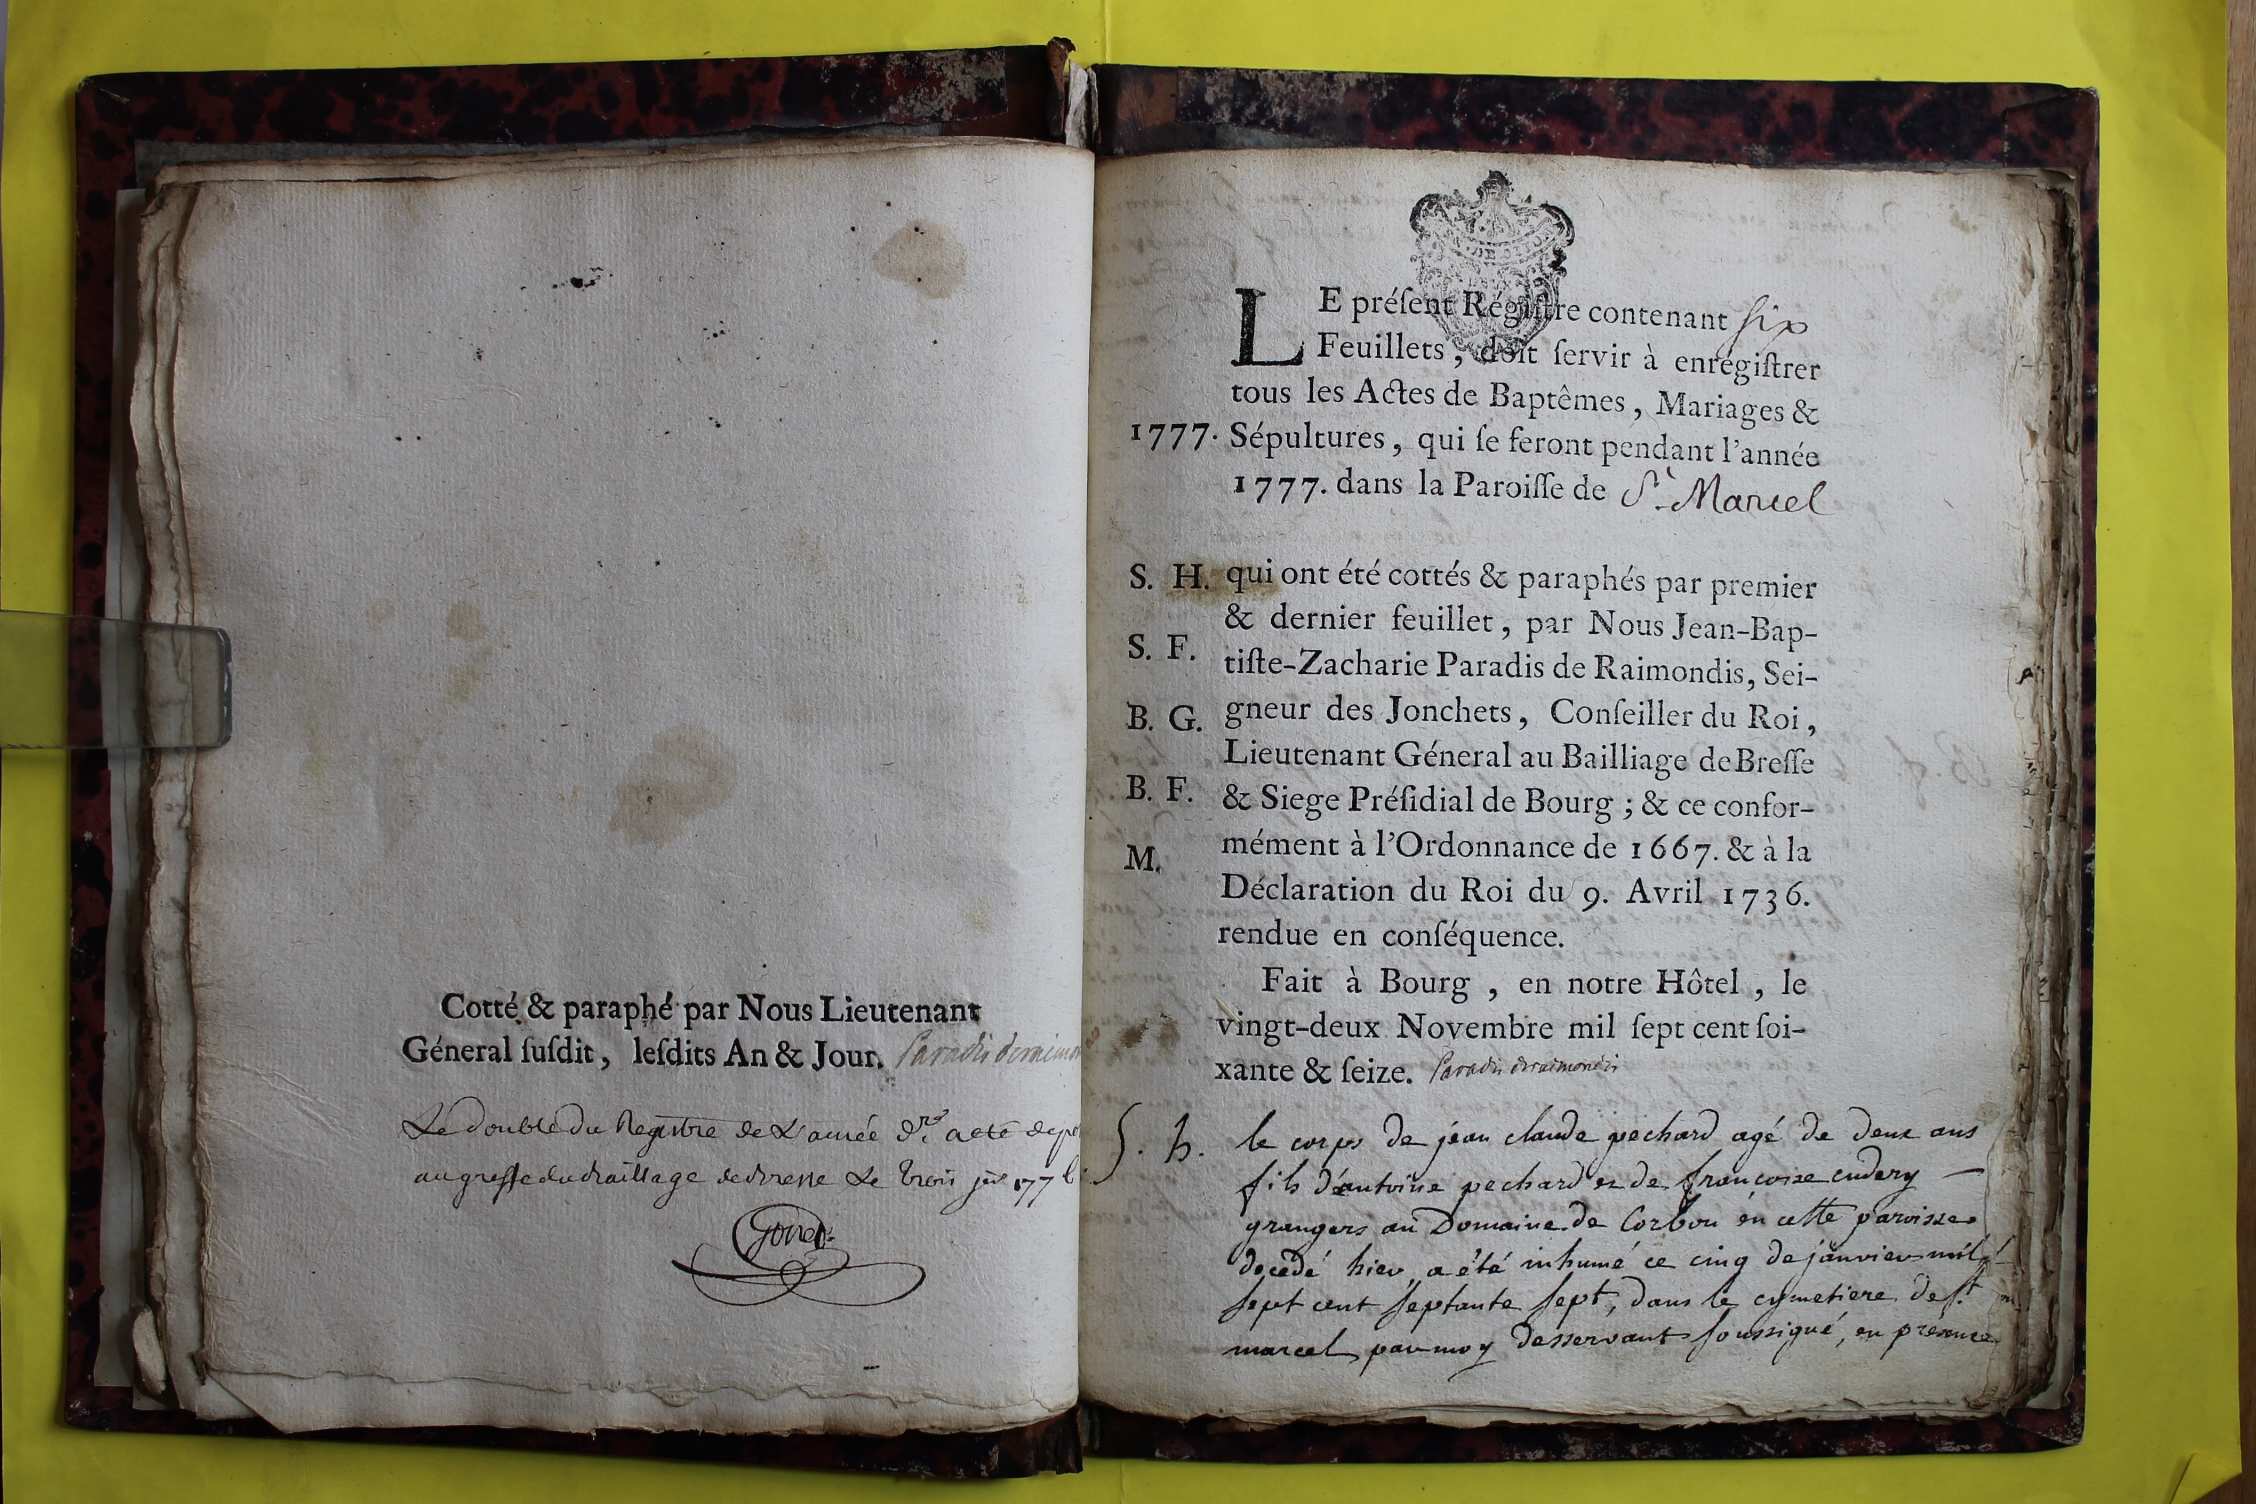 Cotté & paraphé par Nous Lieutenant
Géneral ſuſdit, leſdits An & Jour. Paradis deraimon
Le double du Registre de L'année d.re a eté depo
au greffe du Bailliage de Bresse Le trois
LE préſent Régiſtre contenant ſix
Feuillets, doit ſervir à enrégiſtrer
tous les Actes de Baptêmes, Mariages &
1777. Sépultures, qui ſe feront pendant l'année
1777. dans la Paroiſſe de St. Marcel
S. H. qui ont été cottés & paraphés par premier
& dernier feuillet, par Nous Jean-Bap-
S. F. tiſte-Zacharie Paradis de Raimondis, Sei-
B. G. gneur des Jonchets, Conſeiller du Roi,
Lieutenant Géneral au Bailliage de Breſſe
B. F. & Siege Préſidial de Bourg ; & ce confor-
mément à l'Ordonnance de 1667. & à la
M. Déclaration du Roi du 9. Avril 1736.
rendue en conſéquence.
Fait à Bourg, en notre Hôtel, le
vingt-deux Novembre mil ſept cent ſoi-
xante & ſeize. Paradis deraimondis
S. h. le corps de jean claude pechard agé de deux ans
fils d'antoine pechard et de francoise cudery
grangers au Domaine de Corbou en cette paroisse
decedé hier a été inhumé ce cinq de janvier mil
sept cent septante sept, dans le cymetiere de st
marcel par moy desservant soussigné, en présence